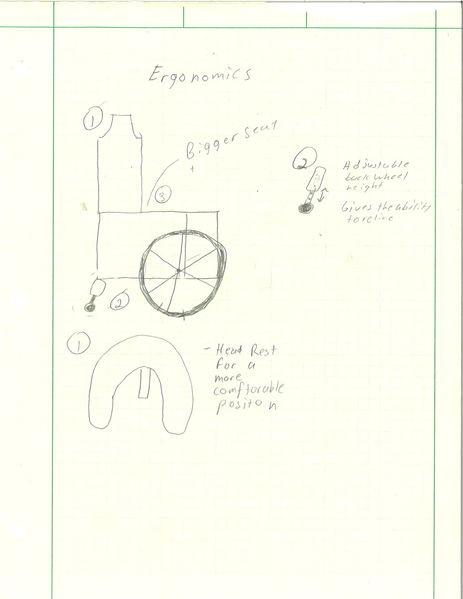 Ergonomics
1
Bigger seat
3
2
Adjustable
back wheel
height
Gives the ability
to recline
2
1
- Head Rest
for a
more
comftorable
positon